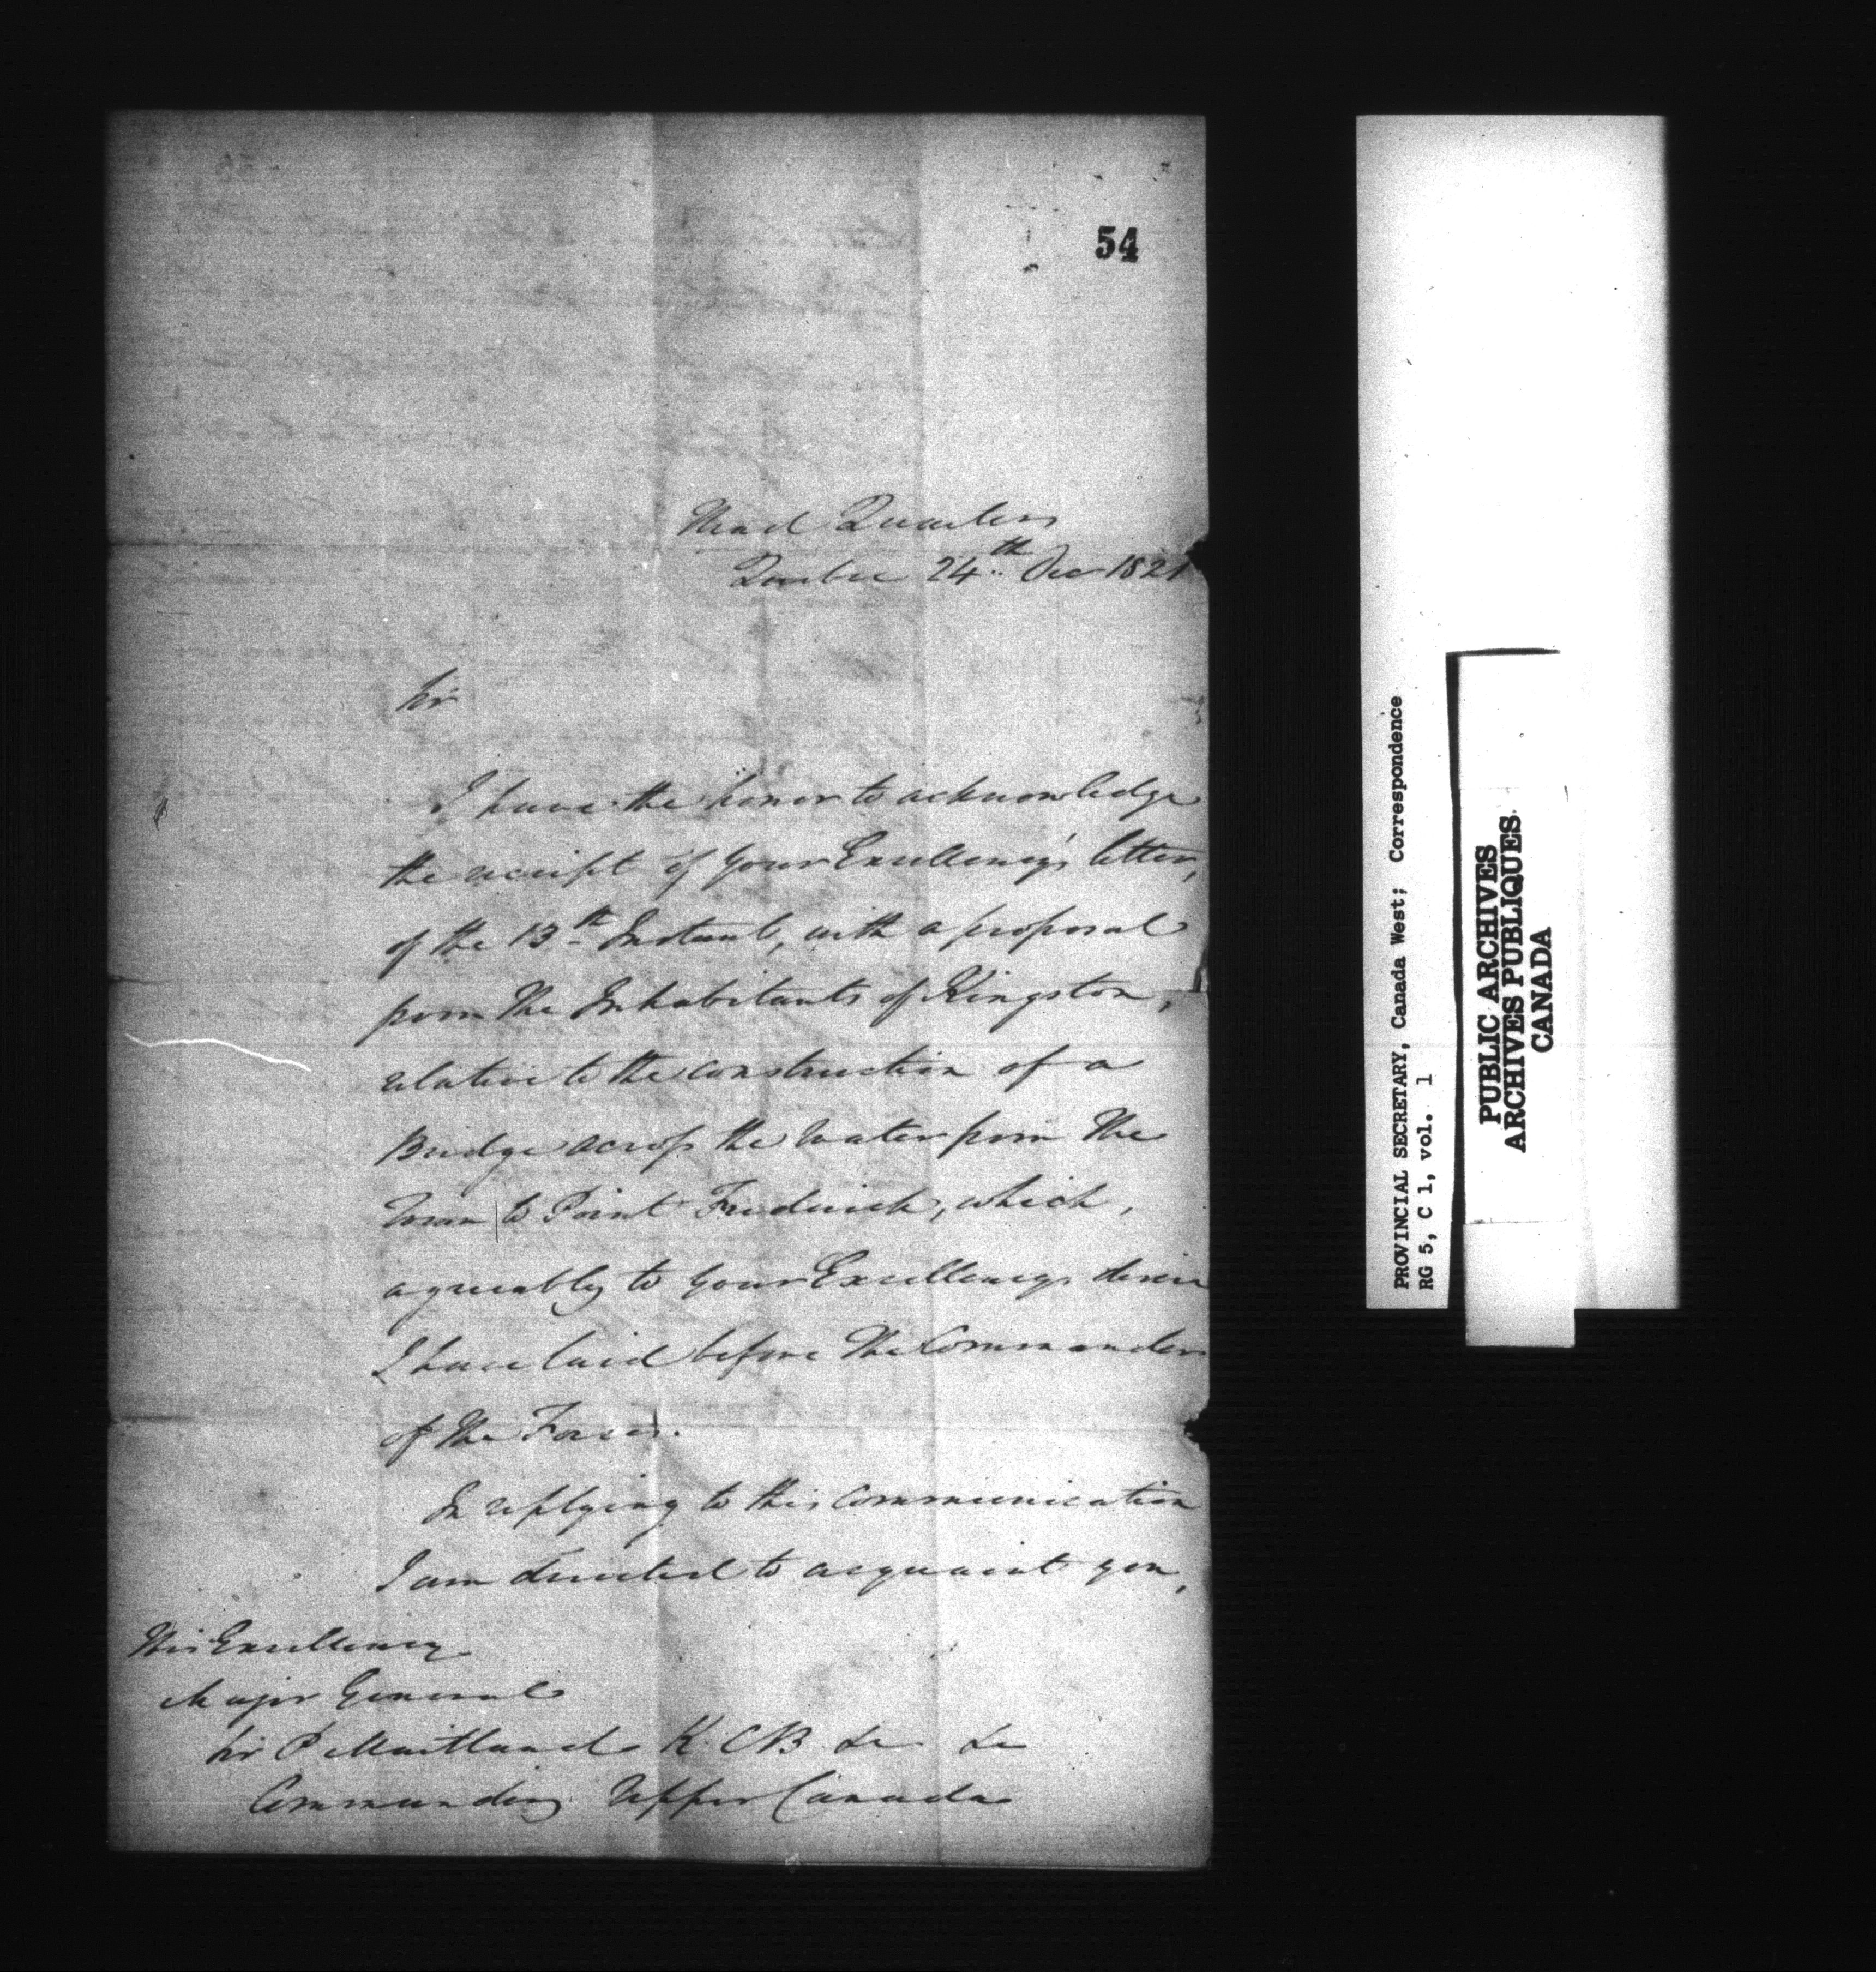 54
Head Quarters
Quebec 24th Dec 1821
Sir
I have the honor to acknowledge
the receipt of your Excellency's letter,
of the 13th Instant, with a proposal
from the Inhabitants of Kingston,
relative to the construction of a
Bridge across the water from the
Town to Point Frederick, which,
agreeably to your Excellency's desire
I have laid before the Commander
of the Forces.
In replying to this communication
I am directed to acquaint you,
His Excellency
Major General
Sir P Maitland K.C.B &c &c
Commanding Upper Canada
PROVINCIAL SECRETARY, Canada West; Correspondence
RG 5, C 1, vol. 1
PUBLIC ARCHIVES
ARCHIVES PUBLIQUES
CANADA